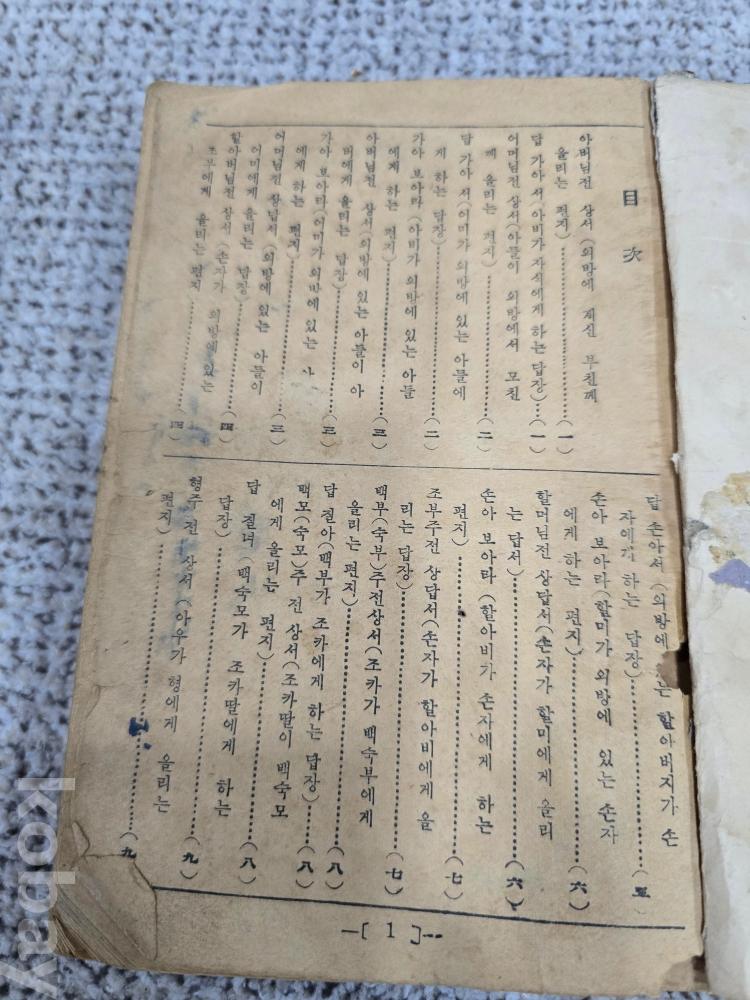 目次
아버님전 상서(외방에 계신 부친께
올리는 편지)……(一)
답 가아서(아비가 자식에게 하는답장)…(一)
어머님전 상서(아들이 외방에서 모친
께 올리는 편지)……(二)
답 가아 서(어미가 외방에 있는 아들에
게 하는 답장)……(二)
가아 보아라(아비가 외방에 있는 아들
에게 하는 편지)……(三)
아버님전 상서(외방에 있는 아들이 아
버에게 올리는 답장)……(三)
가아 보아라(어미가 외방에 있는
에게 하는 편지)……(三)
어머님전 상답서(외방에 있는 아들이
어미에게 올리는 답장)……(四)
할아버님전 상서(손자가 외방에 있는
조부에게 올리는 편지……(四)
답 손아서(외방에 는 할아버지가 손
자에게 하는 답장)……(五)
손아 보아라(할미가 외방에 있는 손자
에게 하는 편지)……(六)
할머님전 상답서(손자가 할미에게 올리
는 답서)……(六)
손아 보아라(할아비가 손자에게 하는
편지)……(七)
조부주전 상답서(손자가 할아비에게 올
리는 답장)……(七)
백부(숙부)주전상서(조카가 백숙부에게
올리는 편지)……(八)
답 질아(백부가 조카에게 하는 답장)(八)
백모(숙모)주 전 상서(조카딸이 백숙모
에게 올리는 편지)……(八)
답 질녀(백숙모가 조카딸에게 하는
답장)……(九)
형주 전 상서(아우가 형에게 올리는
편지)……(九)
—[ 1 ]—
kobay